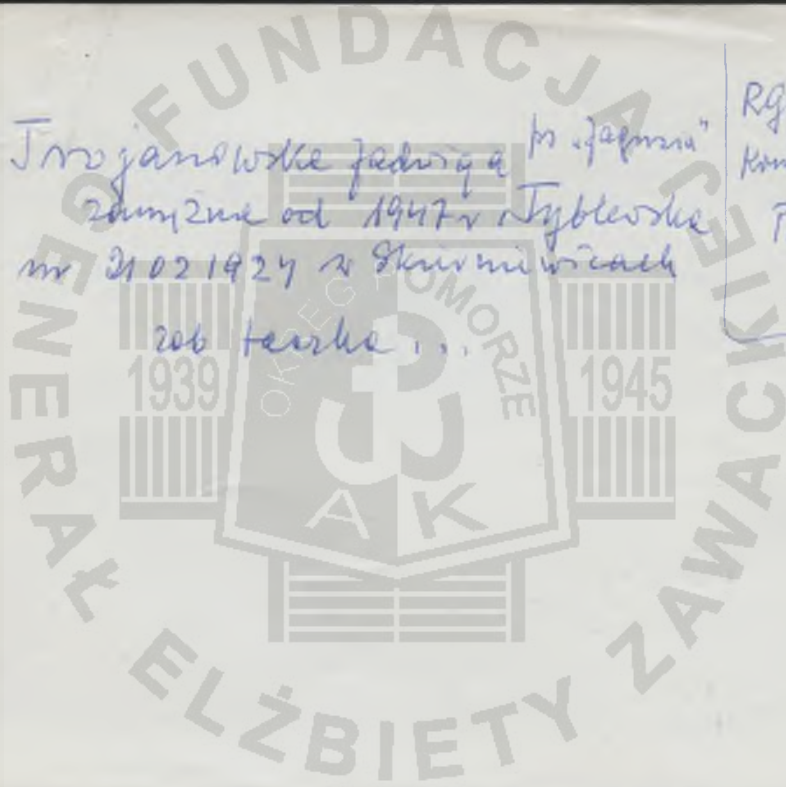 Trojanowska Jadwiga ps „Jagusia"
zamężna od 1947 r. Tyblewska
ur 21 02 1924 w Skierniewicach
zob teczka ...
RG
Kom
FUNDACJA GENERAŁ ELŻBIETY ZAWACKIEJ
OKRĘG POMORZE
1939
1945
A K